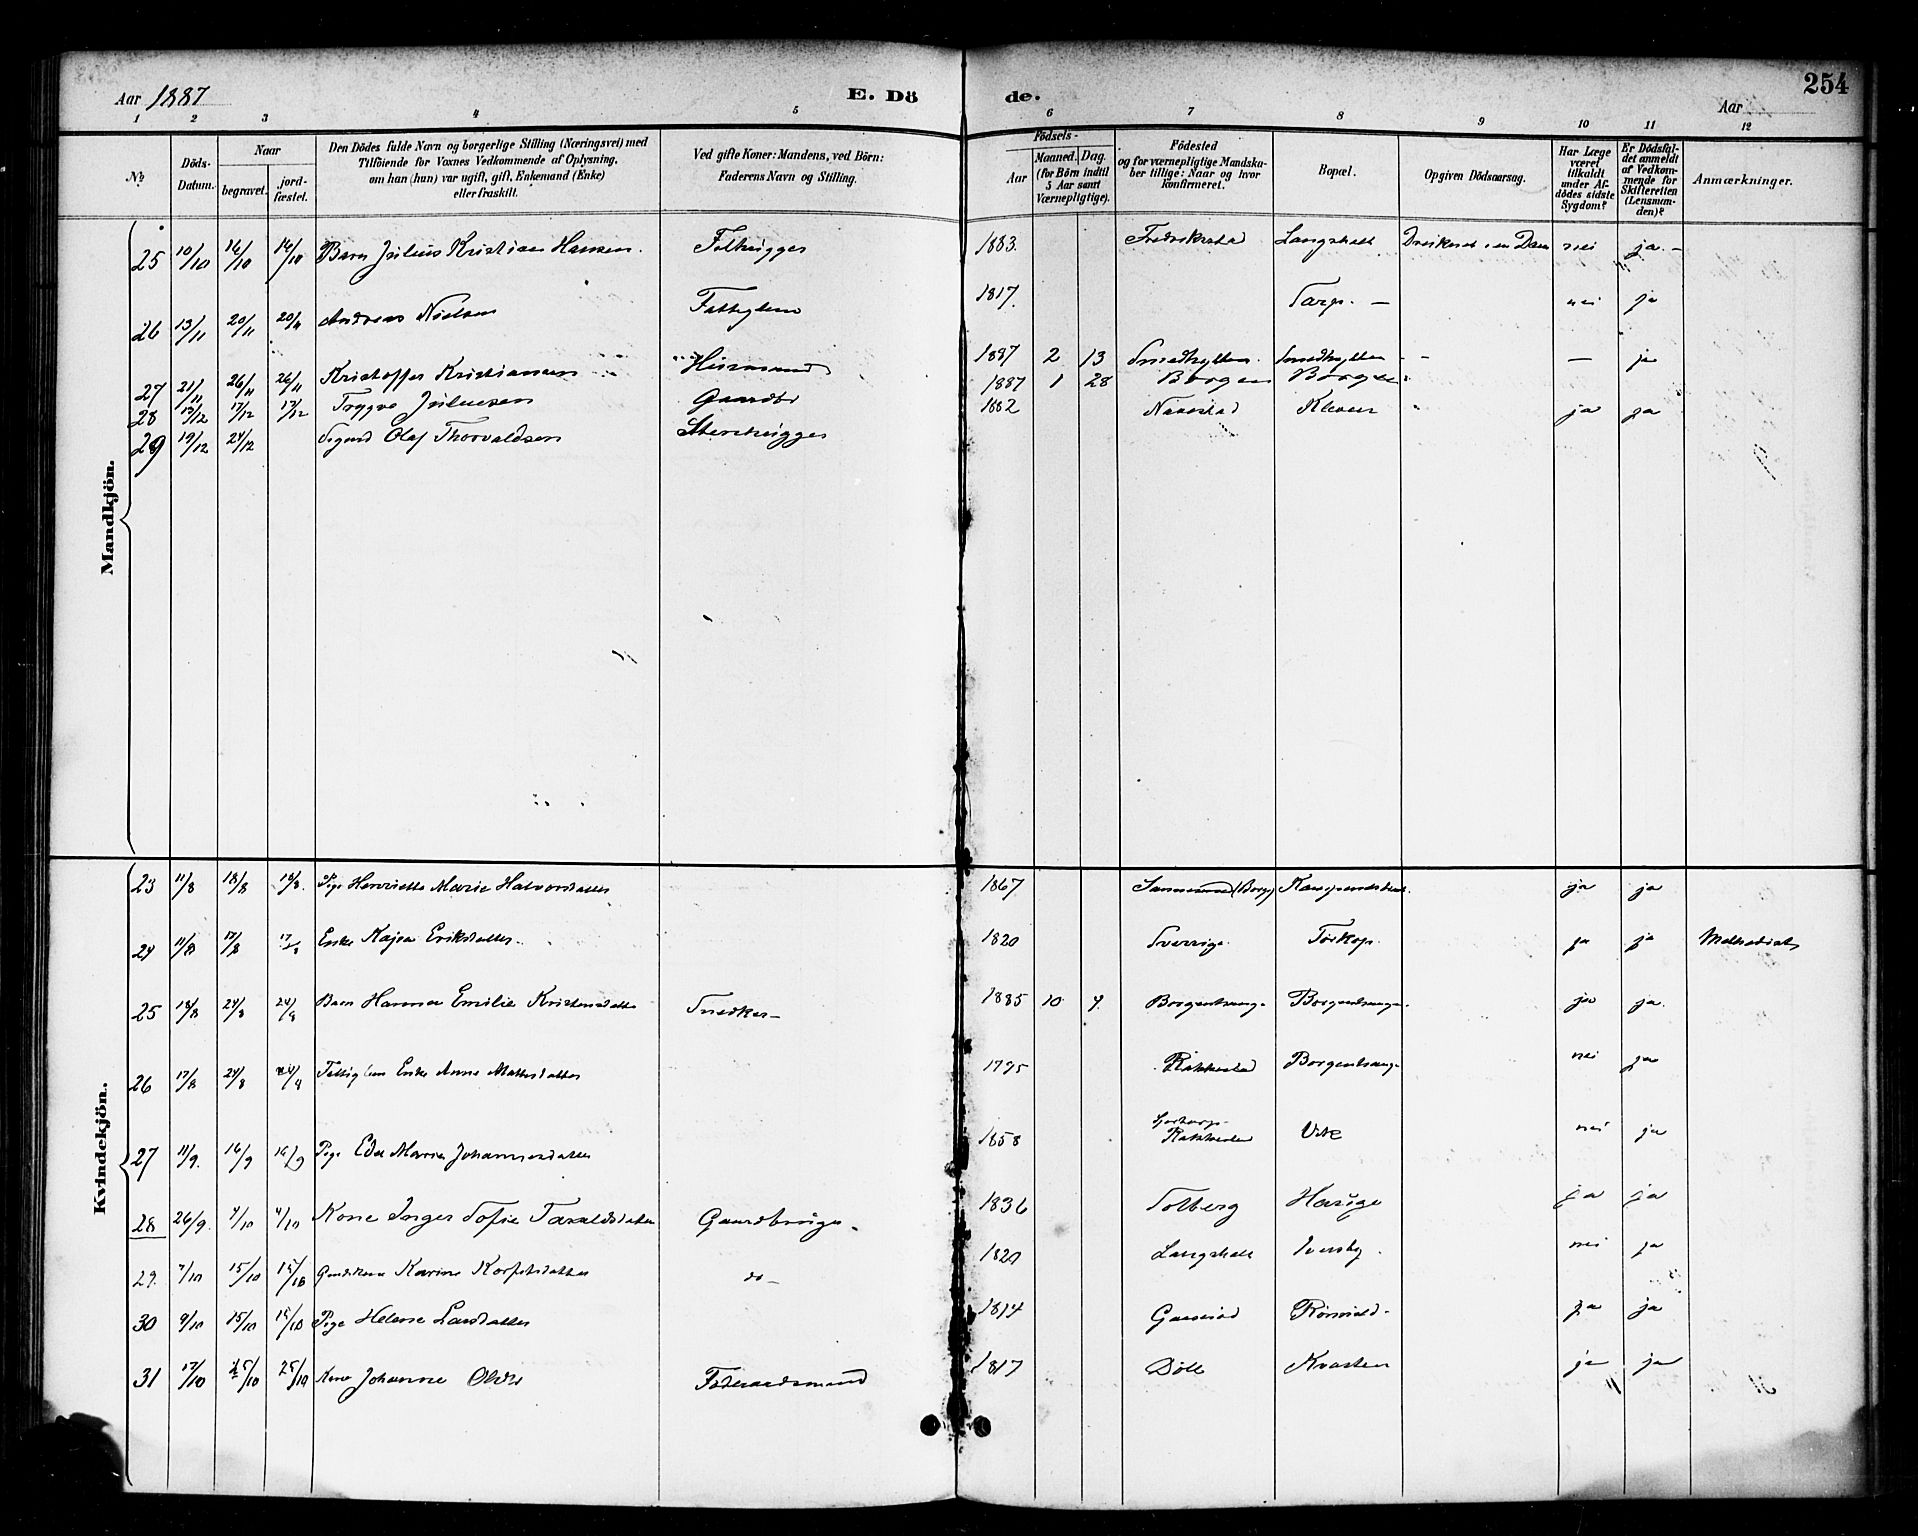 Aar 1887 E. Dö de. Aar 254
1 2 3 4 5 6 7 8 9 10 11 12
№ Döds-Datum. Naar begravet. jord-fæstet. Den Dödes fulde Navn og borgerlige Stilling (Næringsvei) med Tilföiende for Voxnes Vedkommende af Oplysning, om han (hun) var ugift, gift, Enkemand (Enke) eller fraskilt. Ved gifte Koner: Mandens, ved Börn: Faderens Navn og Stilling. Födsels- Aar Maaned. Dag. (for Börn indtil 5 Aar samt Værnepligtige). Födested og for værnepligtige Mandska-ber tillige: Naar og hvor konfirmeret. Bopæl. Opgiven Dödsaarsag. Har Læge været tilkaldt under Af-dödes sidste Sygdom? Er Dödsfal-det anmeldt af Vedkom-mende for Skifteretten (Lensman-den)? Anmærkninger.
Mandkjön.
25 10/10 16/10 16/10 Barn Julius Kristian Hansen. 1883. Fredrikstad Langskalt i en Dam nei ja.-
26 13/11 20/11 20/11 Andreas Nielsen Fattiglem 1817. Torp. - nei ja
27 21/11 26/11 26/11 Kristoffer Kristiansen Huusmand 1887 2 13 Smedhytten. Smedhytten - - ja
28 13/12 17/12 17/12 Trygve Juliussen Gaardbr 1887 1 28 Borgen Borgen
29 19/12 24/12 Sigurd Olaf Thorvaldsen Stenhugger 1882 Navestad Kleven " ja ja
Kvindekjön.
23 11/8 18/8 18/8. Pige Henriette Marie Halvorsdatter 1867 (Borge) ja ja
24 11/8 17/8 Enke Kajsa Eriksdatter. 1820 Sverrige. Torkop. ja ja Methodist
25 18/8 24/8 24/8 Barn Hanna Emilie Kristensdatter Snedker - 1885 10 4. Borgenhauge Borgenhauge. ja ja.
26 17/8 24/8 24/8 Fattiglem Enke Anne Mattisdatter 1795 Rakkestad Borgenhauge nei ja
27 11/9. 16/9 16/9 Pige Eda Marie Johannesdatter 1858 Rakkestad Vik nei ja
28 26/9. 4/10 4/10 Kone Inger Sofie Taraldsdatter Gaardbruger. 1836 Solberg Hauge ja ja
29. 7/10 15/10 15/10 Karine do - 1820 Langskalt Iversby. nei ja
30 9/10 15/10 15/10 Pige Helene Larsdatter 1814 Gaserød ja ja
31 17/10 25/10 25/10 Kone Johanne Olsdr Føderaadsmand 1817 Døle Kvasten ja ja